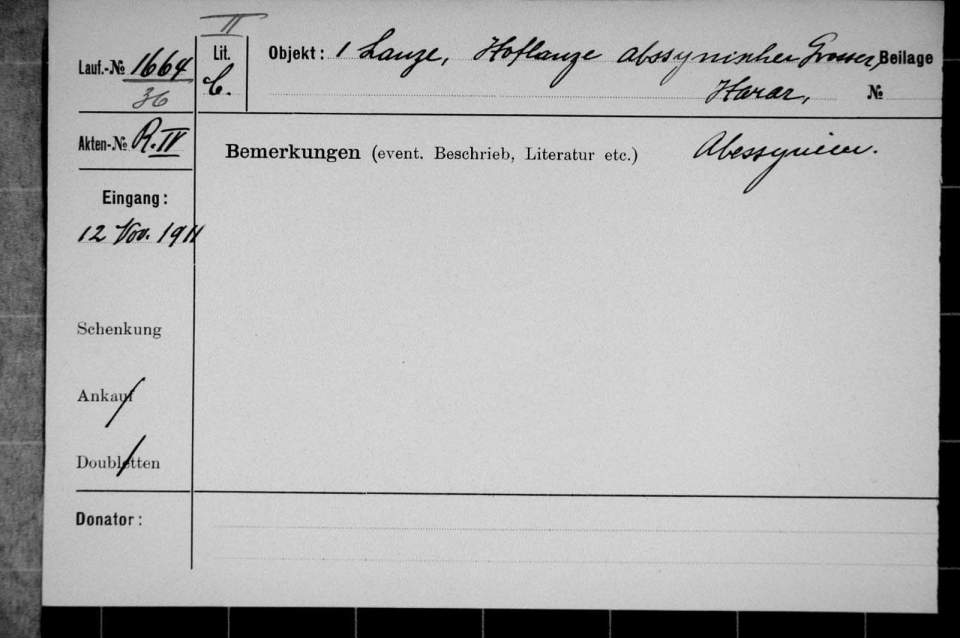 II
Lauf.-№ 1664
36
Lit. C.
Objekt: 1 Lanze, Hoflanze abssynischer Grosser, Beilage
Harar, №
Akten-№ R. IV
Bemerkungen (event. Beschrieb, Literatur etc.) Abessynien.
Eingang:
12 Nov. 1911
Schenkung
Ankauf
Doubletten
Donator: